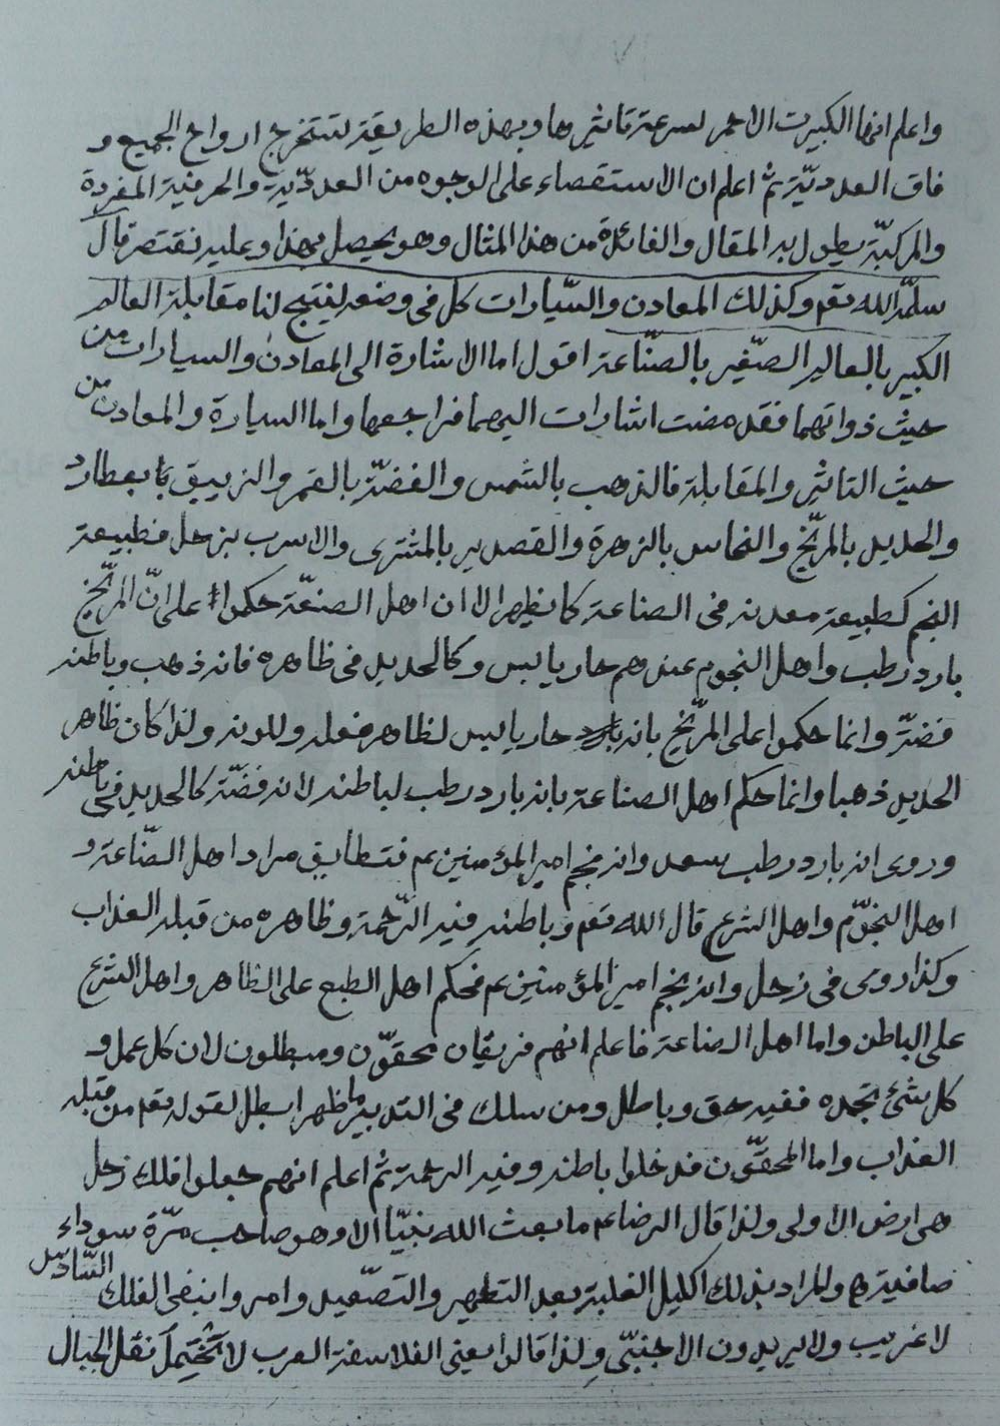 واعلم انها الكبريت الاحمر لسرعة تاثيرها وبهذه الطريقة تستخرج ارواح الجميع و
فاق العدديّة ثم اعلم ان الاستقصاء على الوجوه من العدديّة والحرفية المفردة
والمركبّة يطول به المقال والفائدة من هذا المثال وهو يحصل بهذا وعليه نقتصر قال
سلّمه الله تعم وكذلك المعادن والسّيارات كل فى وضعه لينتج لنا مقابلة العالم
الكبير بالعالم الصّغير بالصنّاعة اقول اما الاشارة الى المعادن والسيارات من
حيث ذواتهما فقد مضت اشارات اليهما فراجعها واما السيارة والمعادن من
حيث التاثير والمقابلة فالذهب بالشمس والفضّة بالقمر والزيبق بعطارد
والحديد بالمرّيخ والنحاس بالزهرة والقصدير بالمشترى والاسرب بزحل فطبيعة
النجم كطبيعة معدنه فى الصناعة كما يظهر الا ان اهل الصنعّة حكموا على انّ المرّيخ
بارد رطب واهل النجوم عندهم حار يابس وكالحديد فى ظاهره فانه ذهب وباطنه
فضّة وانما حكموا على المرّيخ بانه حار يابس لظاهر فعله وللونه ولذا كان ظاهر
الحديد ذهبا وانما حكم اهل الصناعة بانه بارد رطب لباطنه لانه فضّة كالحديد فى باطنه
وروى انه بارد رطب سعد وانه نجم امير المؤمنين عم فتطابق مراد اهل الصّناعة و
اهل النجوّم واهل الشرع قال الله تعم وباطنه فيه الرّحمة وظاهره من قبله العذاب
وكذا روى فى زحل وانه نجم امير المؤمنين عم فحكم اهل الطبع على الظاهر واهل الشرع
على الباطن واما اهل الصناعة فاعلم انهم فريقان محقوّن ومبطلون لان كل عمل و
كل شئ تجده ففيه حق وباطل ومن سلك فى التدبير ما ظهر ابطل لقوله تعم من قبله
العذاب واما المحقوّن فدخلوا باطنه وفيه الرحمة ثم اعلم انهم جعلوا فلك زحل
هى ارض الاولى ولذا قال الرضا عم ما بعث الله نبيّا الا وهو صاحب مرّة سوداء
صافية والمراد بذلك اكليل الغلبة بعد التطهير والتصّعيد وامروا بنفى الفلك السّادس
لا غريب ولا يريدون الاجنبّى ولذا قالوا يعنى الفلاسفة العرب لا تحتمل نقل الجبال